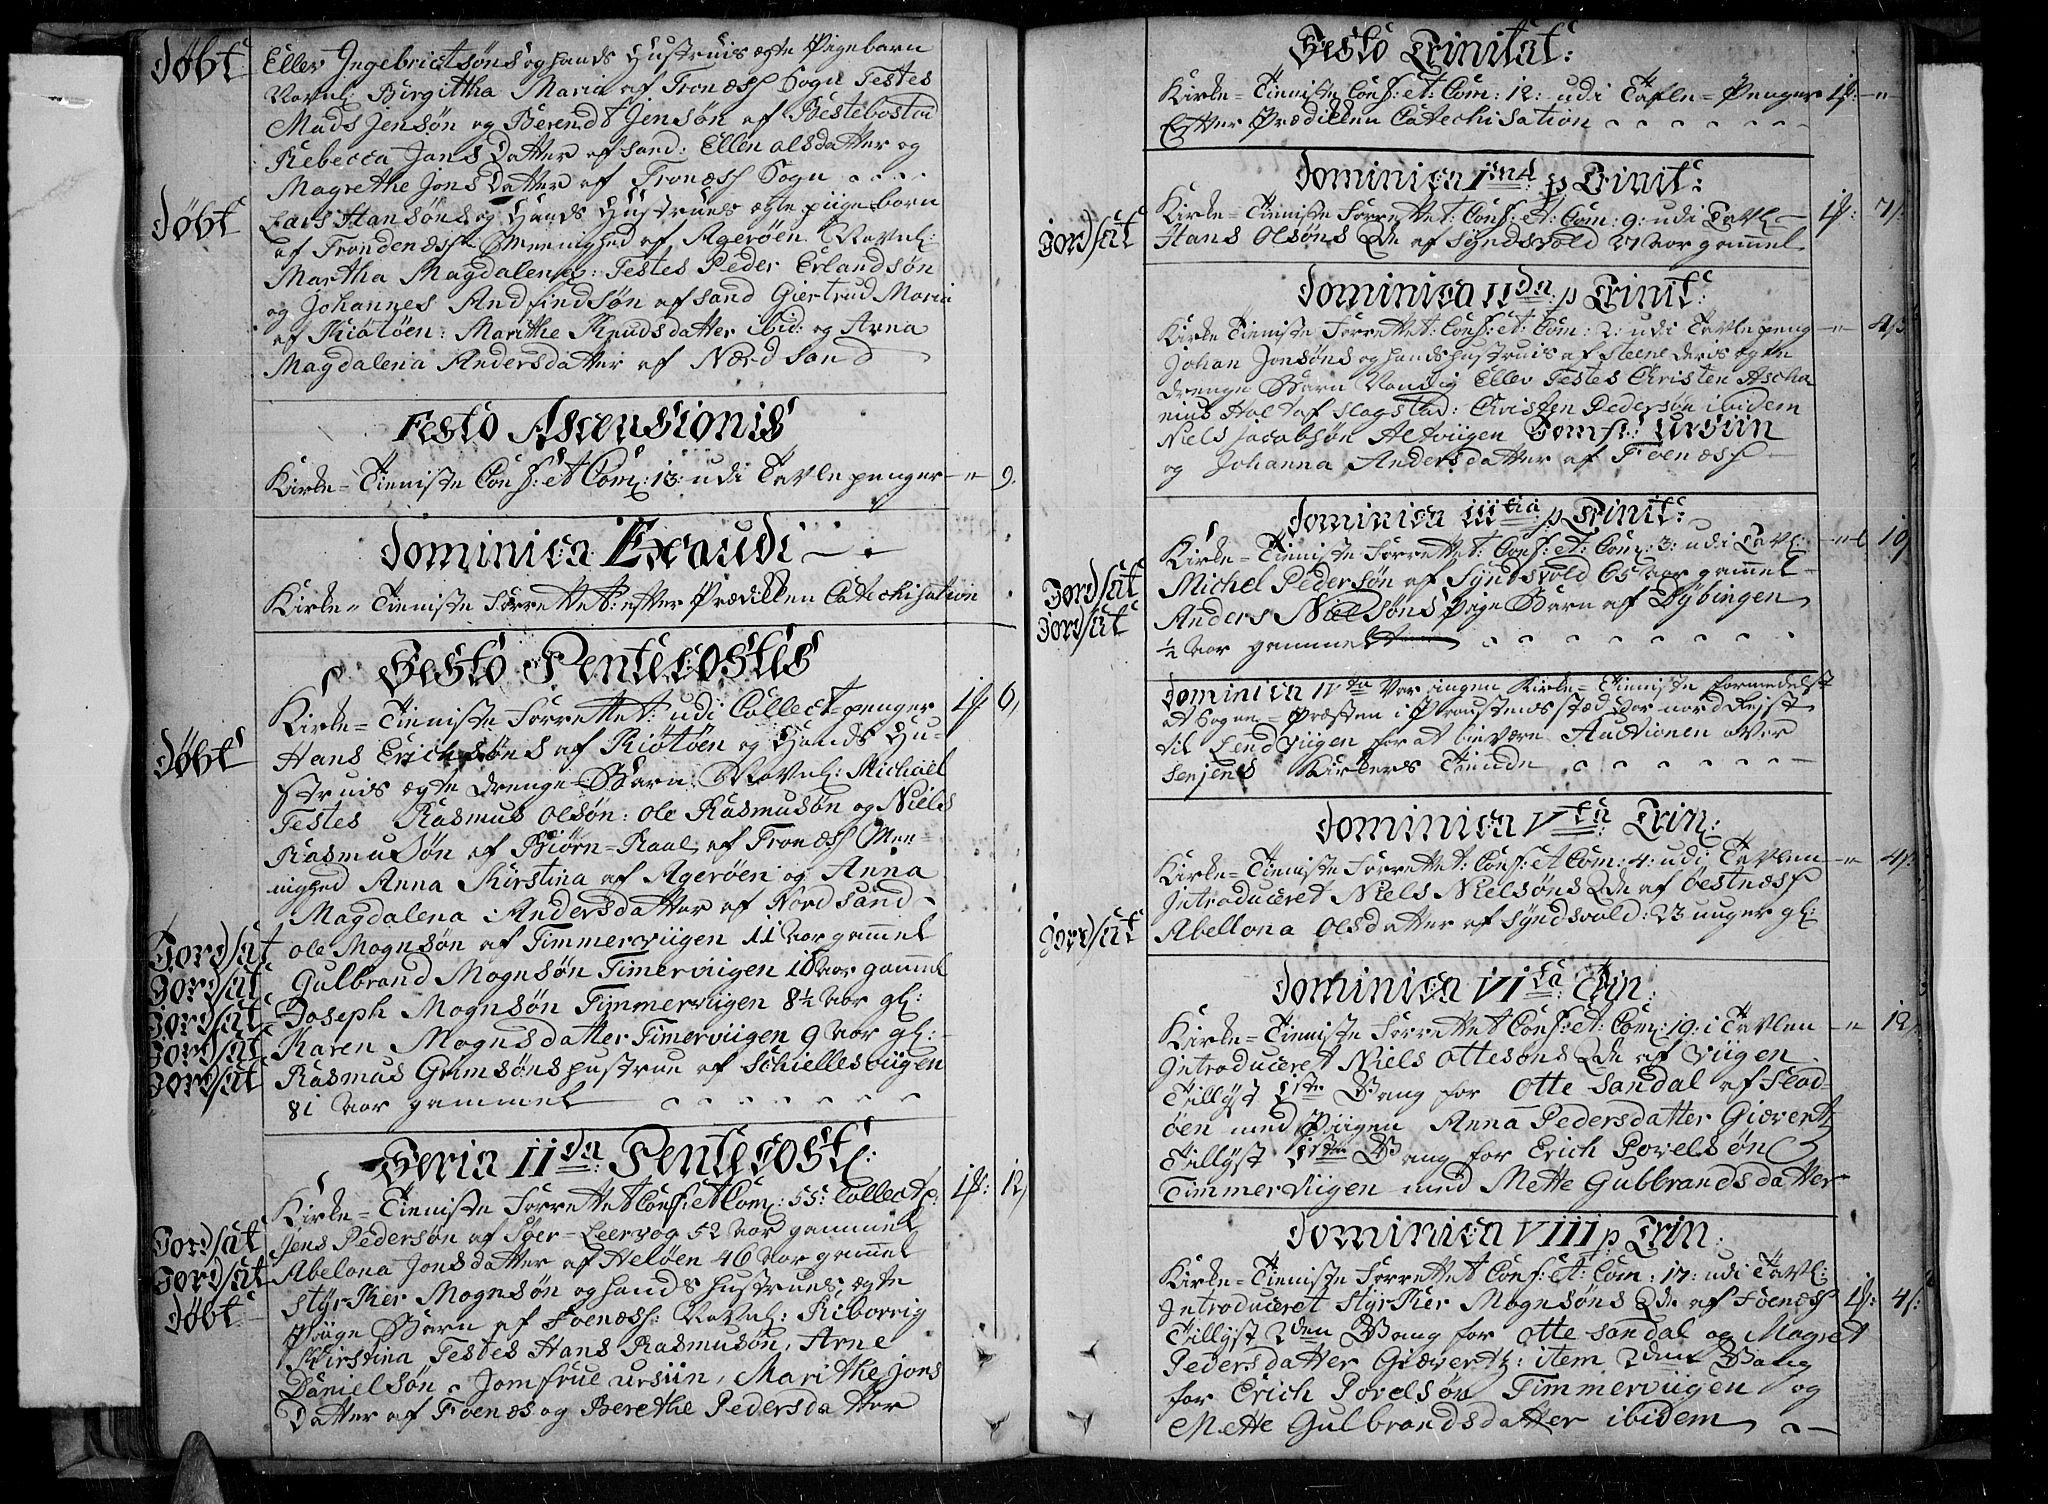 Døbt Eller Ingebrictsøns og hands Hustruis ægte Pigebarn
Navnl: Birgitha Maria af Tronæss Sogn Testes
Mads Jensøn og Berendt Jensøn af Bestebostad
Rebecca Jans Datter af Sand: Ellen Olsdatter og
Magrethe Jons Datter af Tronæss Sogn
Døbt Lars Hansøns og Hands Hustrues ægte piigebarn
af Trondenæss Meenighed af Agerøen Navnl:
Martha Magdalena: Testes Peder Erlandsøn
og Johannes Andfindsøn af Sand Giertrud Maria
af Kiøtøen: Marithe Knudsdatter ibid: og Arna
Magdalena Andersdatter af Nordsand
Festo Ascensionis
Kirke-Tieniste Conf: et Com: 13: udi Tavlepenger -"- 9.
Dominica Exaudi
Kirke-Tieniste Forrettet: efter Prædikken Catechisation
Festo Pentecostes
Kirke-Tieniste Forrettet: udi Collect-penger 1ſ 6
Døbt Hans Erichsøns af Kiøtøen og Hands Hu-
struis ægte Drenge-Barn: Navnl: Michael
Testes Rasmus Olsøn: Ole Rasmusøn og Niels
Rasmusøn af Biørn-Raae af Tronæss Mee-
nighed Anna Kirstina af Agerøen og Anna
Magdalena Andersdatter af Nordsand
Jordsat Ole Mognsøn af Timmerviigen 11 Aar gammel
Jordsat Gulbrand Mognsøn Timerviigen 10 Aar gammel
Jordsat Joseph Mognsøn Timmerviigen 8½ Aar gl:
Jordsat Karen Mognsdatter Timerviigen 9 Aar gl:
Jordsat Rasmus Grimsøns Hustrue af Schiellesviigen
81 Aar gammel
Feria IIda Pentecost:
Kirke-Tieniste Forrettet Conf: et Com: 55: Collect: 1ſ: 12
Jordsat Jens Pedersøn af Søer-Leervog 52 Aar gammel
Jordsat Abelona Jonsdatter af Heløen 46 Aar gammel
Døbt Styrcker Mognsøn og hands hustrues ægte
Piige Barn af Foenæss: Navnl: Riborrig
Kirstina Testes Hans Rasmusøn, Arne
Danielsøn, Jomfrue Ursiin, Marithe Jons
Datter af Foenæs og Berethe Pedersdatter
Festo Trinitat:
Kirke-Tieniste Conf: et: Com: 12: udi Tafle-Penger 1ſ: -"-
Efter Prædikken Catechisation
Dominica Ima p Trinit:
Kirke-Tieniste Forrettet: Conf: et: Com: 9: udi Tavl 1ſ: 7
Jordsat Hans Olsøns Qde af Syndsvold 77 Aar gammel
Dominica IIda p Trinit:
Kirke Tieniste Forrettet: Conf: et: Com: 2: udi Tavlepeng -"- 4ſ
Johan Jonsøns og hands hustruis af Steene deris egte
Drenge Barn Navnlig Eller Testes Christen Ascha
nius Holt af Slagstad: Christen Pedersøn ibidem
Niels Jacobsøn Altviigen Jomf: Ursiin
og Johanna Andersdatter af Foenæss
Dominica IIItia p Trinit:
Kirke-Tieniste Forrettet: Conf: et: Com: 3: udi Tavl: 10
Jordsat Michel Pedersøn af Syndsvold 65 Aar gammel
Jordsat Anders Nielsøns Pige Barn af Dybingen
½ Aar gammel
Dominica IVta Var ingen Kirke-Tieniste formedelst
at Sogne-Præsten i Proustens stæd var nord Rejst
til Lendviigen for at beverne Auctionen over
Senjens Kirkers Tiende
Dominica Vta Trin:
Kirke-Tieniste Forrettet: Conf: et Com: 4: udi Tavlen -"- 4ſ
Introduceret Niels Nielsøns Qde af Østnæss
Jordsat Abellona Olsdatter af Syndsvold: 23 uuger gl:
Dominica VIta Trin:
Kirke-Tieniste Forrettet Conf: et: Com: 19: i Tavlen -"- 12
Introduceret Niels Ottesøns Qde af Viigen
Tillyst 1ste Gang for Otte Sandal af Flad-
øen med Piigen Anna Pedersdatter Giævertz
Tillyst 1ste Gang for Erich Povelsøn
Timmerviigen med Mette Gulbrandsdatter
Dominica VIII p Trin:
Kirke-Tieniste Forrettet Conf: et: Com: 17: udi Tavl:
Introduceret Styrcker Mognsøns Qde af Foenæss 1ſ: 4ſ:
Tillyst 2den Gang for Otte Sandal og Magret
Pedersdatter Giævertz: item 2den Gang
for Erich Povelsøn Timmerviigen og
Mette Gulbrandsdatter ibidem